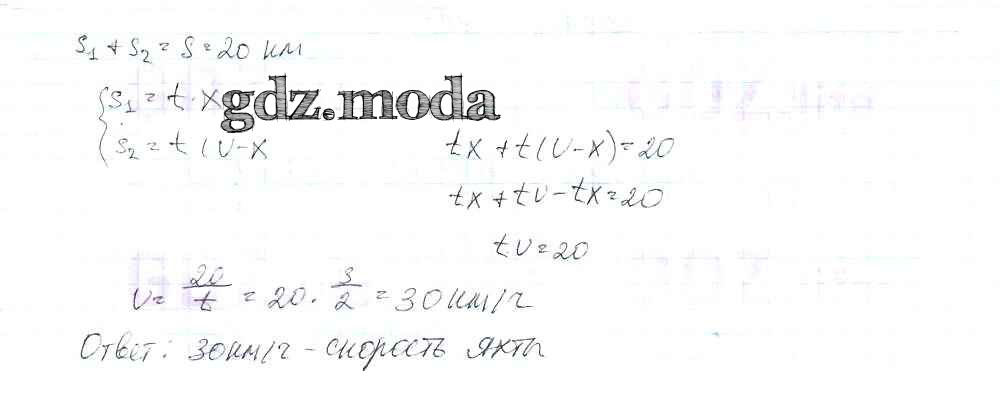 S₁ + S₂ = S = 20 км
{ S₁ = t · x
gdz.moda
S₂ = t (v - x
tx + t(v - x) = 20
tx + tv - tx = 20
tv = 20
v = 20/t = 20 · 3/2 = 30 км/ч
Ответ: 30 км/ч - скорость яхты